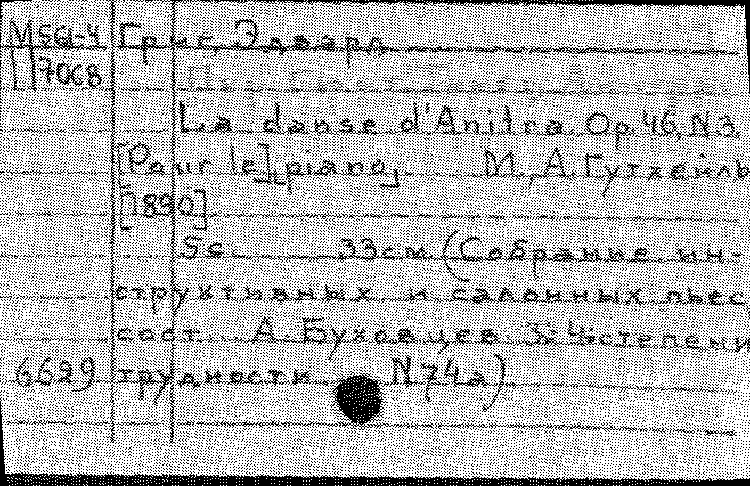 М561-4 Григ, Эдвард.
П706в
La danse d'Anitra. Op. 46, N 3.
[Pour le] piano М., А. Гутхейль
[1890]
5с. 33см. (Собрание ин-
структивных и салонных пьес,
сост. А. Буховцев 3: 4: степени
6629 трудности. N 74а).